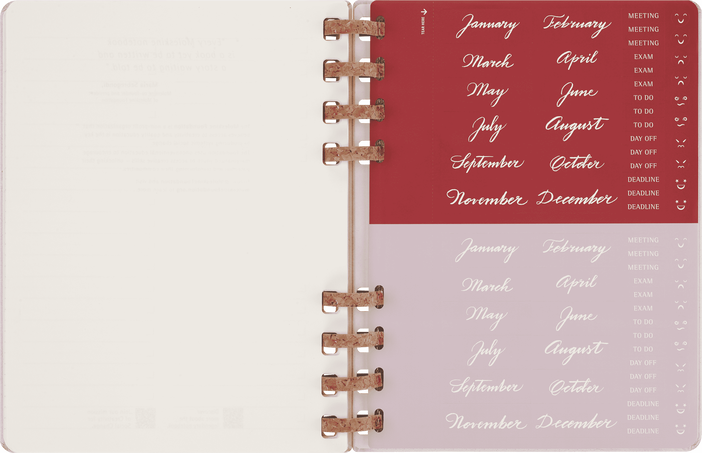 TEAR HERE
January February
March April
May June
July August
September October
November December
MEETING
MEETING
MEETING
EXAM
EXAM
EXAM
TO DO
TO DO
TO DO
DAY OFF
DAY OFF
DAY OFF
DEADLINE
DEADLINE
DEADLINE
January February
March April
May June
July August
September October
November December
MEETING
MEETING
MEETING
EXAM
EXAM
EXAM
TO DO
TO DO
TO DO
DAY OFF
DAY OFF
DAY OFF
DEADLINE
DEADLINE
DEADLINE